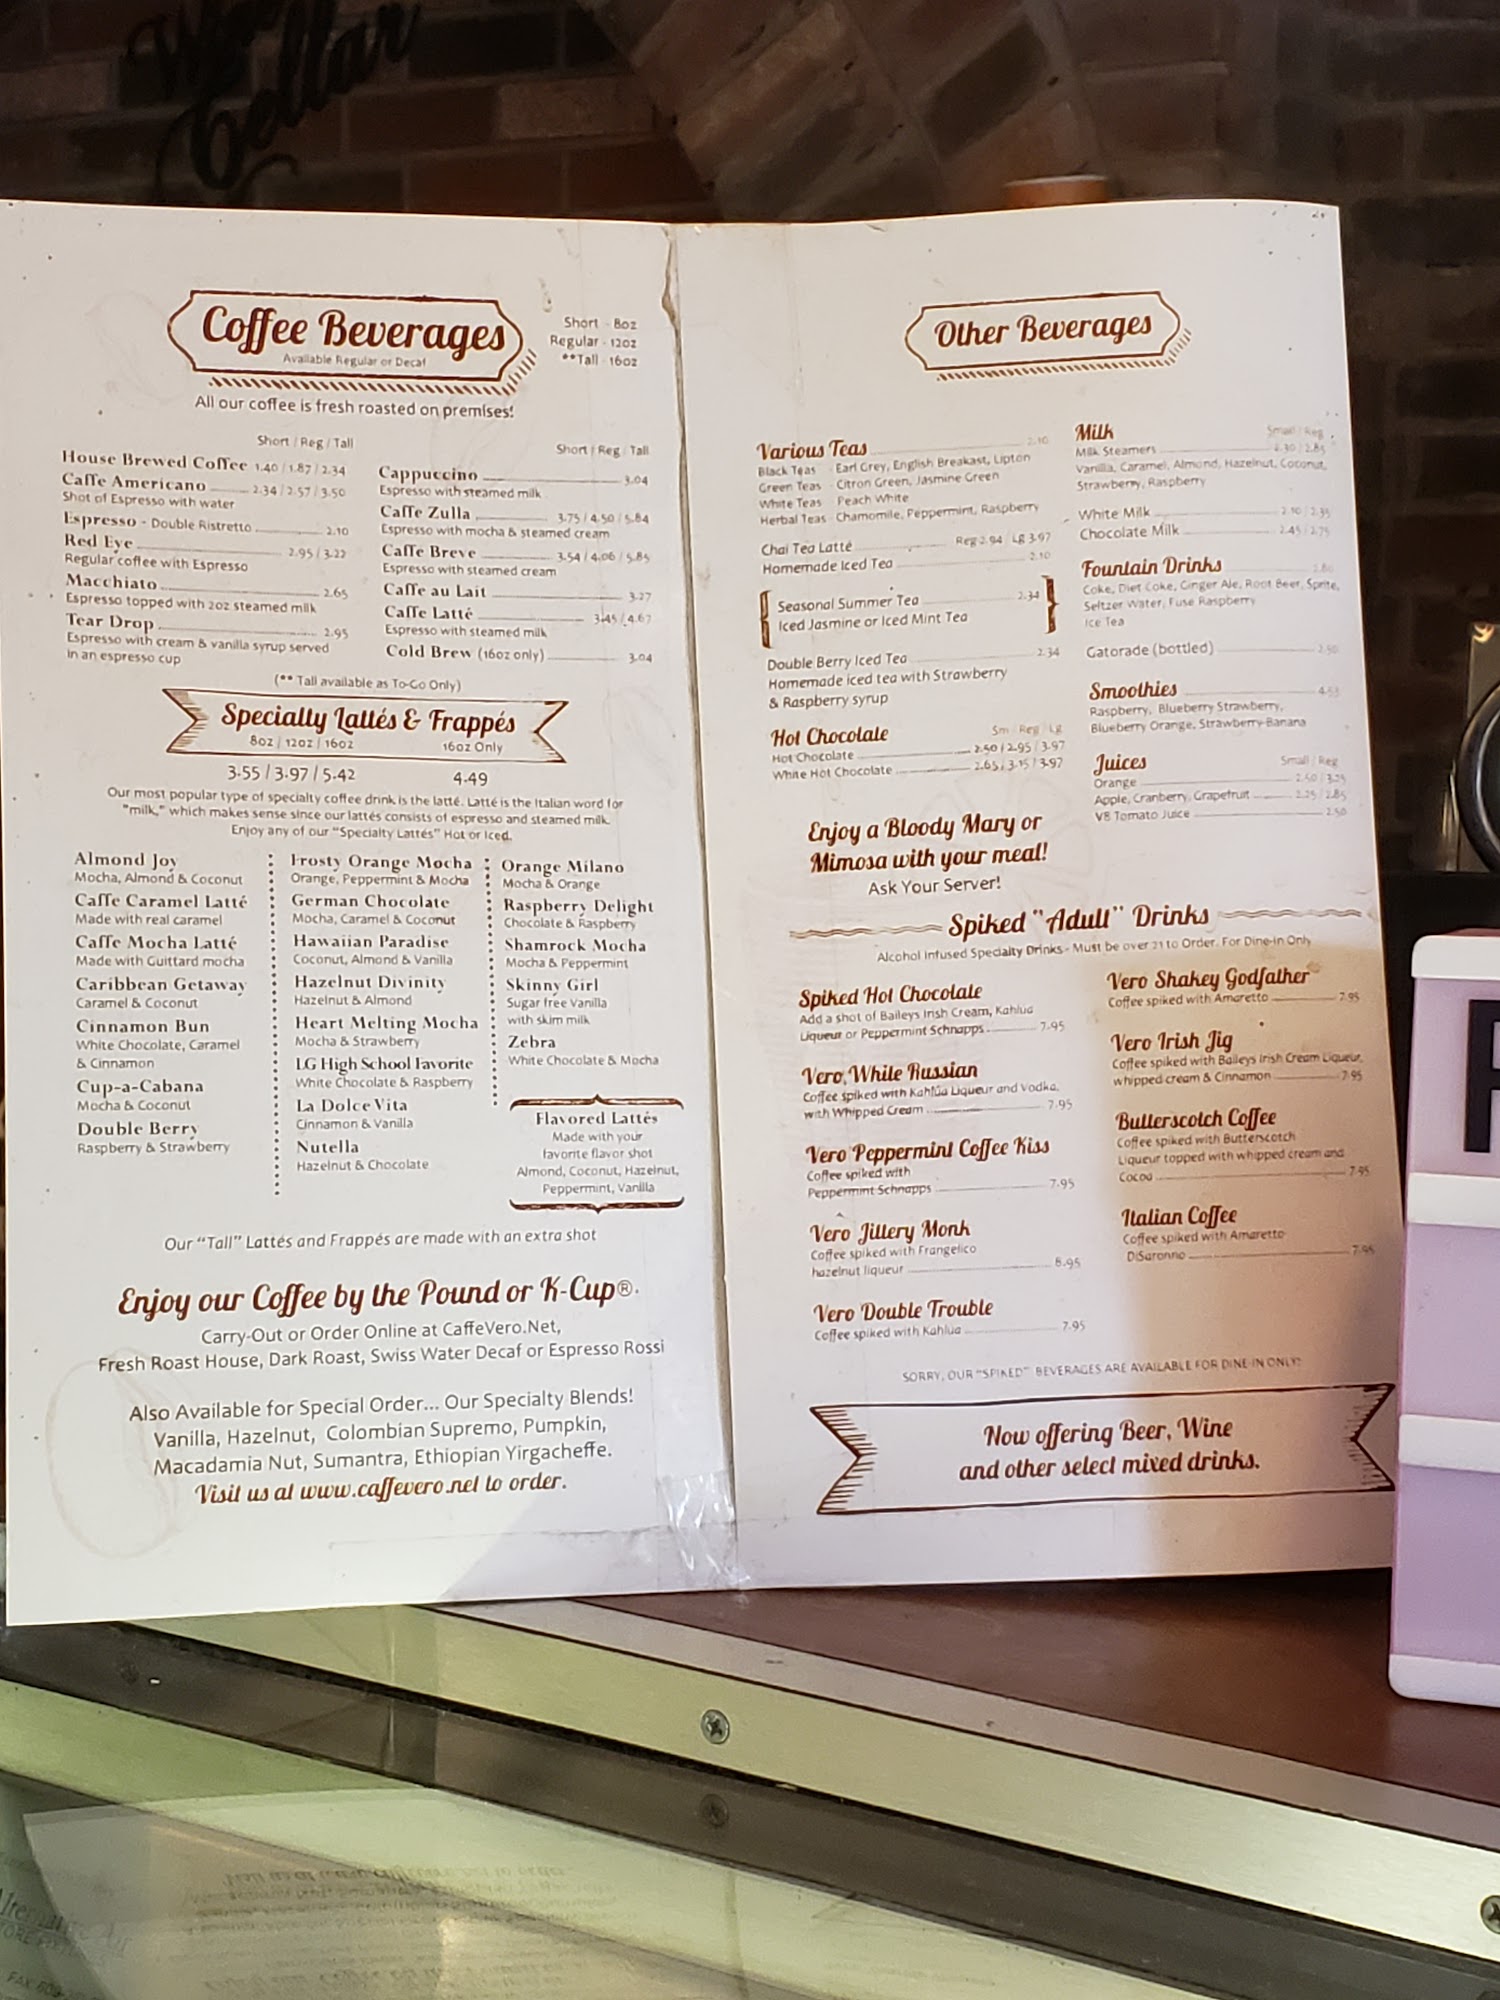 Wine
Cellar
Coffee Beverages
Available Regular or Decaf
Short - 8oz
Regular - 12oz
**Tall - 16oz
All our coffee is fresh roasted on premises!
Short / Reg / Tall
House Brewed Coffee 1.40 / 1.87 / 2.34
Caffe Americano 2.34 / 2.57 / 3.50
Shot of Espresso with water
Espresso - Double Ristretto 2.10
Red Eye 2.95 / 3.22
Regular coffee with Espresso
Macchiato 2.65
Espresso topped with 2oz steamed milk
Tear Drop 2.95
Espresso with cream & vanilla syrup served
in an espresso cup
Short / Reg / Tall
Cappuccino 3.04
Espresso with steamed milk
Caffe Zulla 3.75 / 4.50 / 5.84
Espresso with mocha & steamed cream
Caffe Breve 3.54 / 4.06 / 5.85
Espresso with steamed cream
Caffe au Lait 3.27
Caffe Latté 3.45 / 4.67
Espresso with steamed milk
Cold Brew (16oz only) 3.04
(** Tall available as To-Go Only)
Specialty Lattés & Frappés
8oz / 12oz / 16oz 16oz Only
3.55 / 3.97 / 5.42 4.49
Our most popular type of specialty coffee drink is the latté. Latté is the Italian word for
"milk," which makes sense since our lattés consists of espresso and steamed milk.
Enjoy any of our "Specialty Lattés" Hot or Iced.
Almond Joy
Mocha, Almond & Coconut
Caffe Caramel Latté
Made with real caramel
Caffe Mocha Latté
Made with Guittard mocha
Caribbean Getaway
Caramel & Coconut
Cinnamon Bun
White Chocolate, Caramel
& Cinnamon
Cup-a-Cabana
Mocha & Coconut
Double Berry
Raspberry & Strawberry
Frosty Orange Mocha
Orange, Peppermint & Mocha
German Chocolate
Mocha, Caramel & Coconut
Hawaiian Paradise
Coconut, Almond & Vanilla
Hazelnut Divinity
Hazelnut & Almond
Heart Melting Mocha
Mocha & Strawberry
LG High School Favorite
White Chocolate & Raspberry
La Dolce Vita
Cinnamon & Vanilla
Nutella
Hazelnut & Chocolate
Orange Milano
Mocha & Orange
Raspberry Delight
Chocolate & Raspberry
Shamrock Mocha
Mocha & Peppermint
Skinny Girl
Sugar free Vanilla
with skim milk
Zebra
White Chocolate & Mocha
Flavored Lattés
Made with your
favorite flavor shot
Almond, Coconut, Hazelnut,
Peppermint, Vanilla
Our "Tall" Lattés and Frappés are made with an extra shot
Enjoy our Coffee by the Pound or K-Cup®.
Carry-Out or Order Online at CaffeVero.Net,
Fresh Roast House, Dark Roast, Swiss Water Decaf or Espresso Rossi
Also Available for Special Order... Our Specialty Blends!
Vanilla, Hazelnut, Colombian Supremo, Pumpkin,
Macadamia Nut, Sumantra, Ethiopian Yirgacheffe.
Visit us at www.caffevero.net to order.
Other Beverages
Various Teas 2.10
Black Teas - Earl Grey, English Breakast, Lipton
Green Teas - Citron Green, Jasmine Green
White Teas - Peach White
Herbal Teas - Chamomile, Peppermint, Raspberry
Chai Tea Latté Reg 2.94 / Lg 3.97
Homemade Iced Tea 2.10
Seasonal Summer Tea 2.34
Iced Jasmine or Iced Mint Tea
Double Berry Iced Tea 2.34
Homemade iced tea with Strawberry
& Raspberry syrup
Hot Chocolate Sm / Reg / Lg
Hot Chocolate 2.50 / 2.95 / 3.97
White Hot Chocolate 2.65 / 3.15 / 3.97
Enjoy a Bloody Mary or
Mimosa with your meal!
Ask Your Server!
Milk Small / Reg
Milk Steamers 2.30 / 2.85
Vanilla, Caramel, Almond, Hazelnut, Coconut,
Strawberry, Raspberry
White Milk 2.10 / 2.35
Chocolate Milk 2.45 / 2.75
Fountain Drinks
Coke, Diet Coke, Ginger Ale, Root Beer, Sprite,
Seltzer Water, Fuse Raspberry
Ice Tea
Gatorade (bottled) 2.50
Smoothies 4.53
Raspberry, Blueberry Strawberry,
Blueberry Orange, Strawberry-Banana
Juices Small / Reg
Orange 2.50 / 3.25
Apple, Cranberry, Grapefruit 2.25 / 2.85
V8 Tomato Juice 2.50
Spiked "Adult" Drinks
Alcohol Infused Specialty Drinks - Must be over 21 to Order. For Dine-In Only
Spiked Hot Chocolate
Add a shot of Baileys Irish Cream, Kahlua
Liqueur or Peppermint Schnapps 7.95
Vero White Russian
Coffee spiked with Kahlúa Liqueur and Vodka,
with Whipped Cream 7.95
Vero Peppermint Coffee Kiss
Coffee spiked with
Peppermint Schnapps 7.95
Vero Jillery Monk
Coffee spiked with Frangelico
hazelnut liqueur 8.95
Vero Double Trouble
Coffee spiked with Kahlua 7.95
Vero Shakey Godfather
Coffee spiked with Amaretto 7.95
Vero Irish Jig
Coffee spiked with Baileys Irish Cream Liqueur,
whipped cream & Cinnamon 7.95
Butterscotch Coffee
Coffee spiked with Butterscotch
Liqueur topped with whipped cream and
Cocoa 7.95
Italian Coffee
Coffee spiked with Amaretto
DiSaronno 7.95
SORRY, OUR "SPIKED" BEVERAGES ARE AVAILABLE FOR DINE-IN ONLY!
Now offering Beer, Wine
and other select mixed drinks.